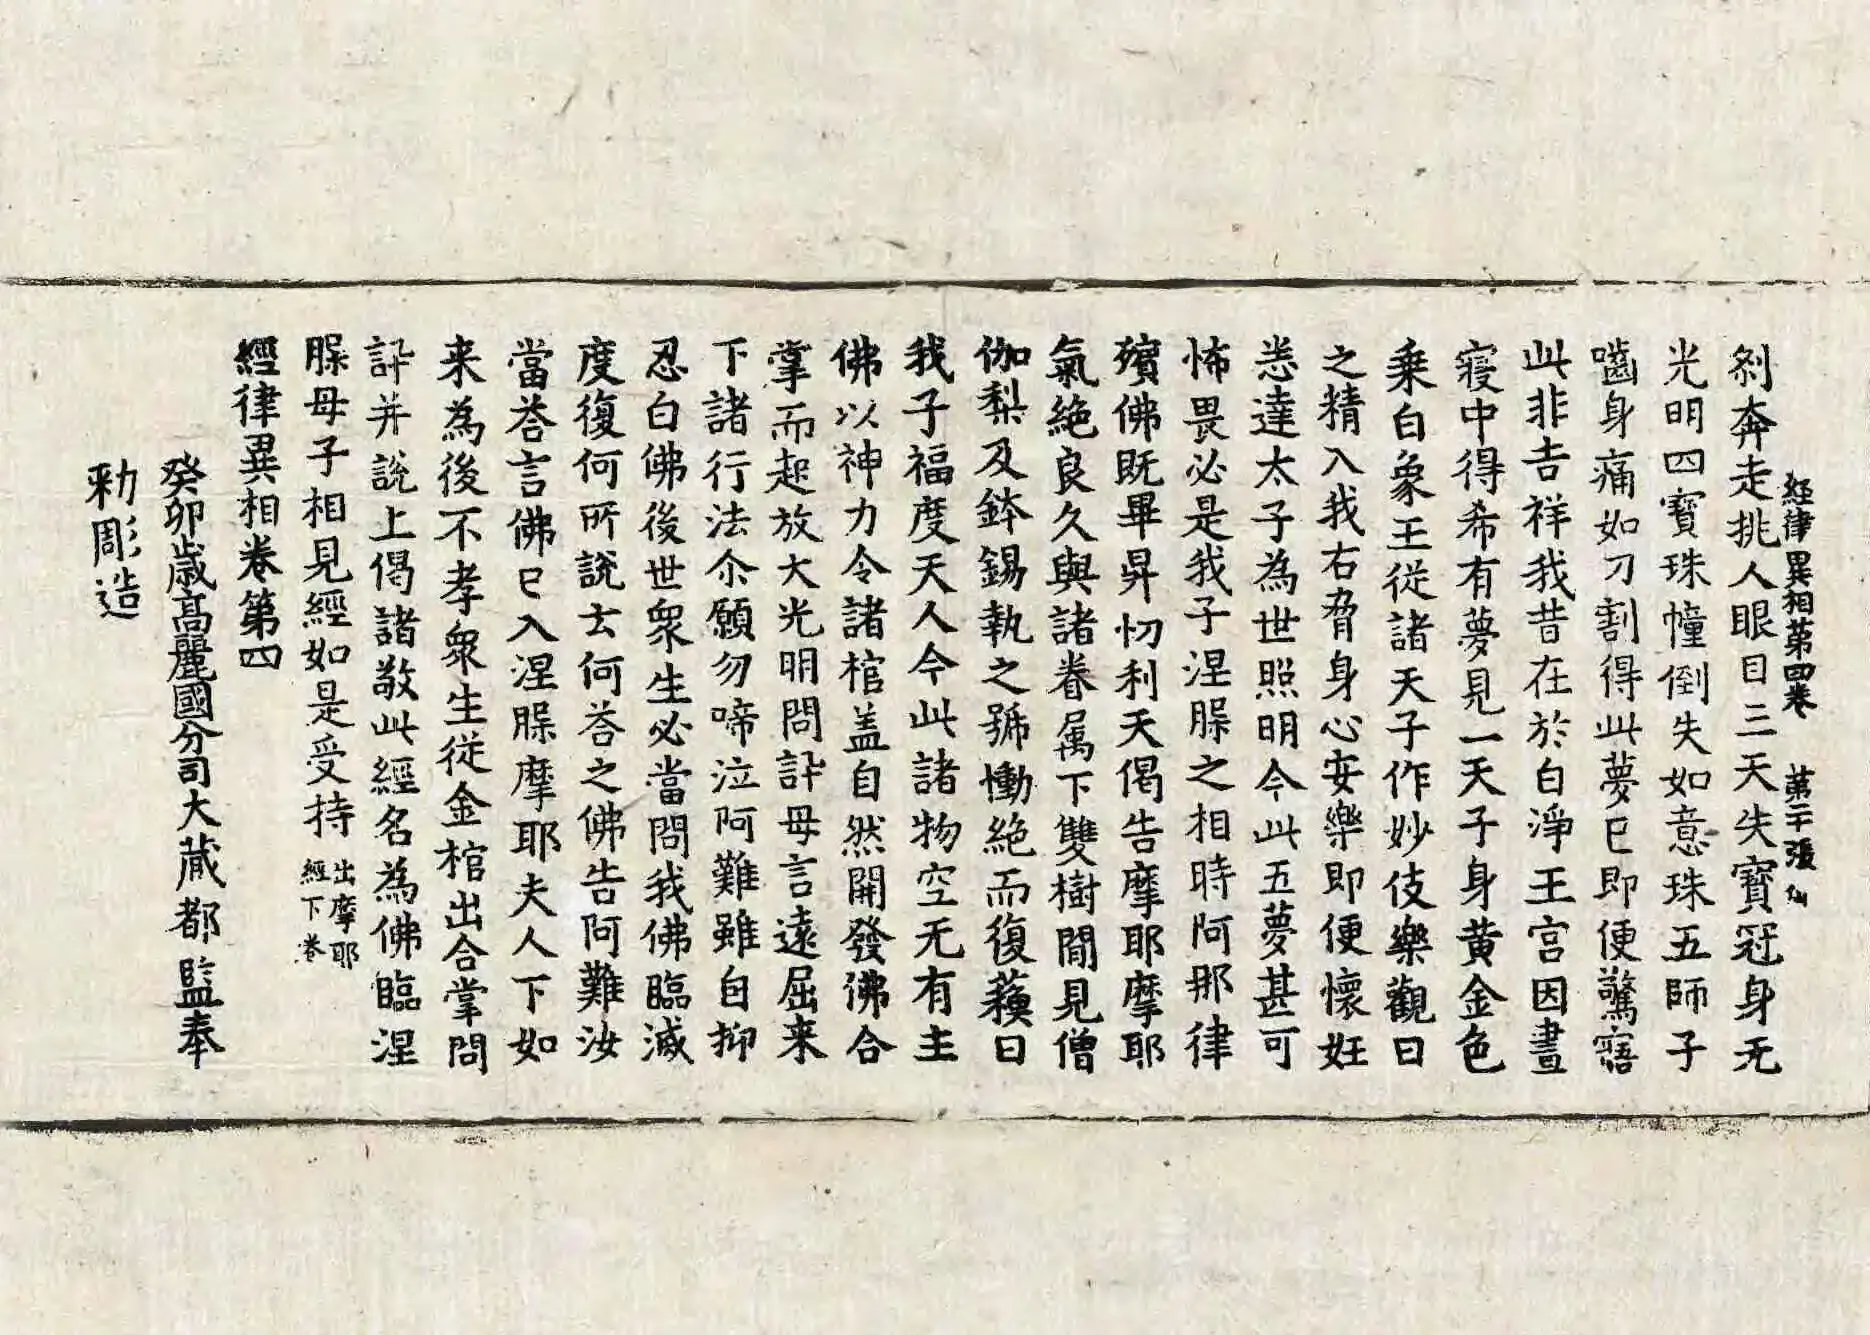 経律異相苐四巻 苐二十張 仙
剎奔走挑人眼目三天失寶冠身无
光明四寶珠幢倒失如意珠五師子
嚙身痛如刀割得此夢已即便驚寤
此非吉祥我昔在於白淨王宮因晝
寢中得希有夢見一天子身黄金色
乗白象王従諸天子作妙伎樂觀日
之精入我右脅身心安樂即便懷妊
悉達太子為世照明今此五夢甚可
怖畏必是我子涅槃之相時阿那律
殯佛既畢昇忉利天偈告摩耶摩耶
氣絶良久與諸眷属下雙樹間見僧
伽梨及鉢錫執之號慟絶而復蘓曰
我子福度天人今此諸物空无有主
佛以神力令諸棺盖自然開發佛合
掌而起放大光明問訊母言遠屈来
下諸行法尒願勿啼泣阿難雖自抑
忍白佛後世衆生必當問我佛臨滅
度復何所說云何荅之佛告阿難汝
當荅言佛已入涅槃摩耶夫人下如
来為後不孝衆生従金棺出合掌問
訊并說上偈諸敬此經名為佛臨涅
槃母子相見經如是受持 出摩耶經下巻
經律異相巻第四
癸卯歳髙麗國分司大蔵都監奉
勑彫造